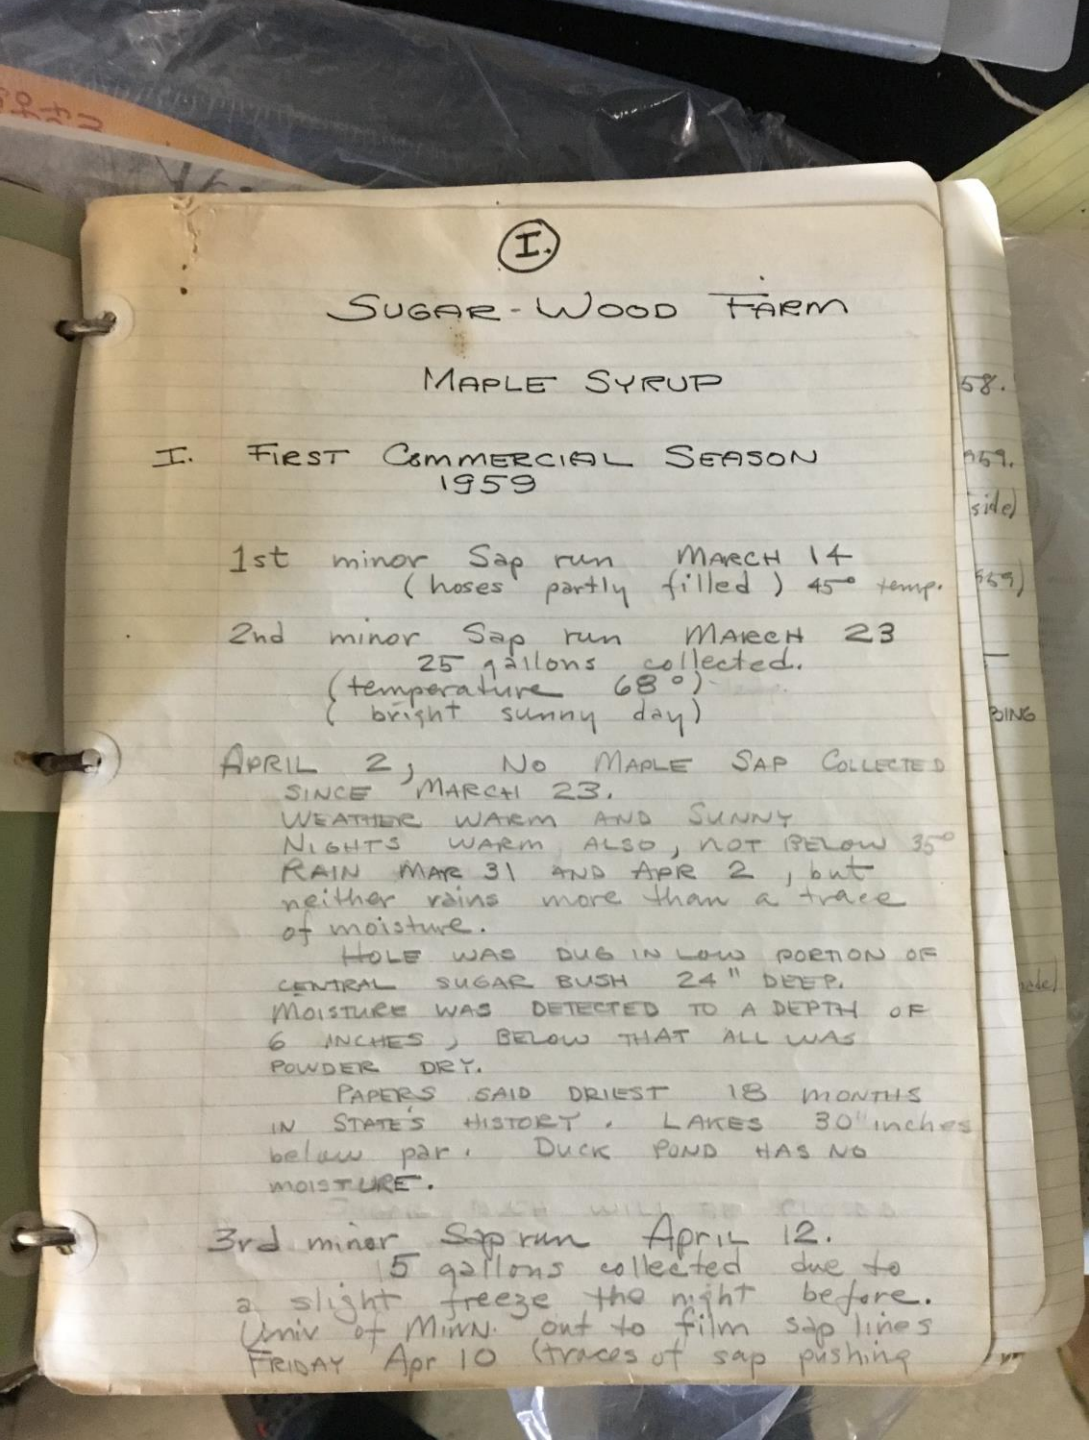 I.
SUGAR-WOOD FARM
MAPLE SYRUP
I. FIRST COMMERCIAL SEASON
1959
1st minor Sap run MARCH 14
(hoses partly filled) 45° temp.
2nd minor Sap run MARCH 23
25 gallons collected.
(temperature 68°)
(bright sunny day)
APRIL 2, NO MAPLE SAP COLLECTED
SINCE MARCH 23.
WEATHER WARM AND SUNNY
NIGHTS WARM ALSO, NOT BELOW 35°
RAIN MAR 31 AND APR 2, but
neither rains more than a trace
of moisture.
HOLE WAS DUG IN LOW PORTION OF
CENTRAL SUGAR BUSH 24" DEEP.
MOISTURE WAS DETECTED TO A DEPTH OF
6 INCHES, BELOW THAT ALL WAS
POWDER DRY.
PAPERS SAID DRIEST 18 MONTHS
IN STATE'S HISTORY. LAKES 30" inches
below par. DUCK POND HAS NO
MOISTURE.
3rd minor Sap run APRIL 12.
5 gallons collected due to
a slight freeze the night before.
Univ of MINN. out to film sap lines
FRIDAY Apr 10 (traces of sap pushing
58.
959.
side)
959)
BING